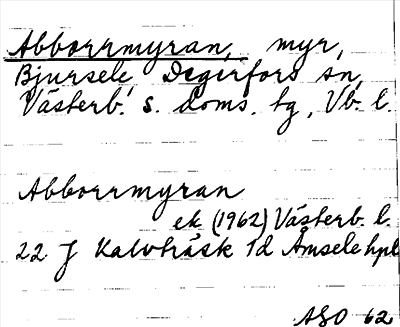 Abborrmyran, myr,
Bjursele Degerfors sn,
Västerb. s. doms. tg, Vb. l.
Abborrmyran
ek (1962) Västerb. l.
22 J Kalvträsk 1d Åmsele hpl
ASO 62